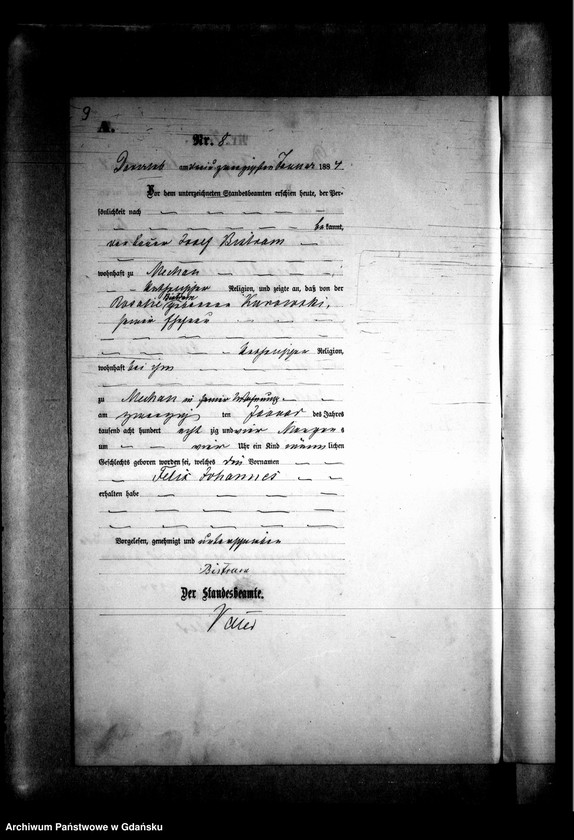 9
A.
Nr. 8
am ein und zwanzigsten Januar 1884
Vor dem unterzeichneten Standesbeamten erschien heute, der Per-
sönlichkeit nach
be kannt,
Josef Bistram
wohnhaft zu Mechau
katholischer Religion, und zeigte an, daß von der
Bistram
Rosalie geborenen Kurowski,
seiner Ehefrau
katholischer Religion,
wohnhaft bei ihm
zu Mechau in seiner Wohnung
am zwanzig ten Januar des Jahres
tausend acht hundert acht zig und vier Morgens
um vier Uhr ein Kind männ lichen
Geschlechts geboren worden sei, welches die Vornamen
Felix Johannes
erhalten habe
Vorgelesen, genehmigt und unterschrieben
Bistram
Der Standesbeamte.
Archiwum Państwowe w Gdańsku